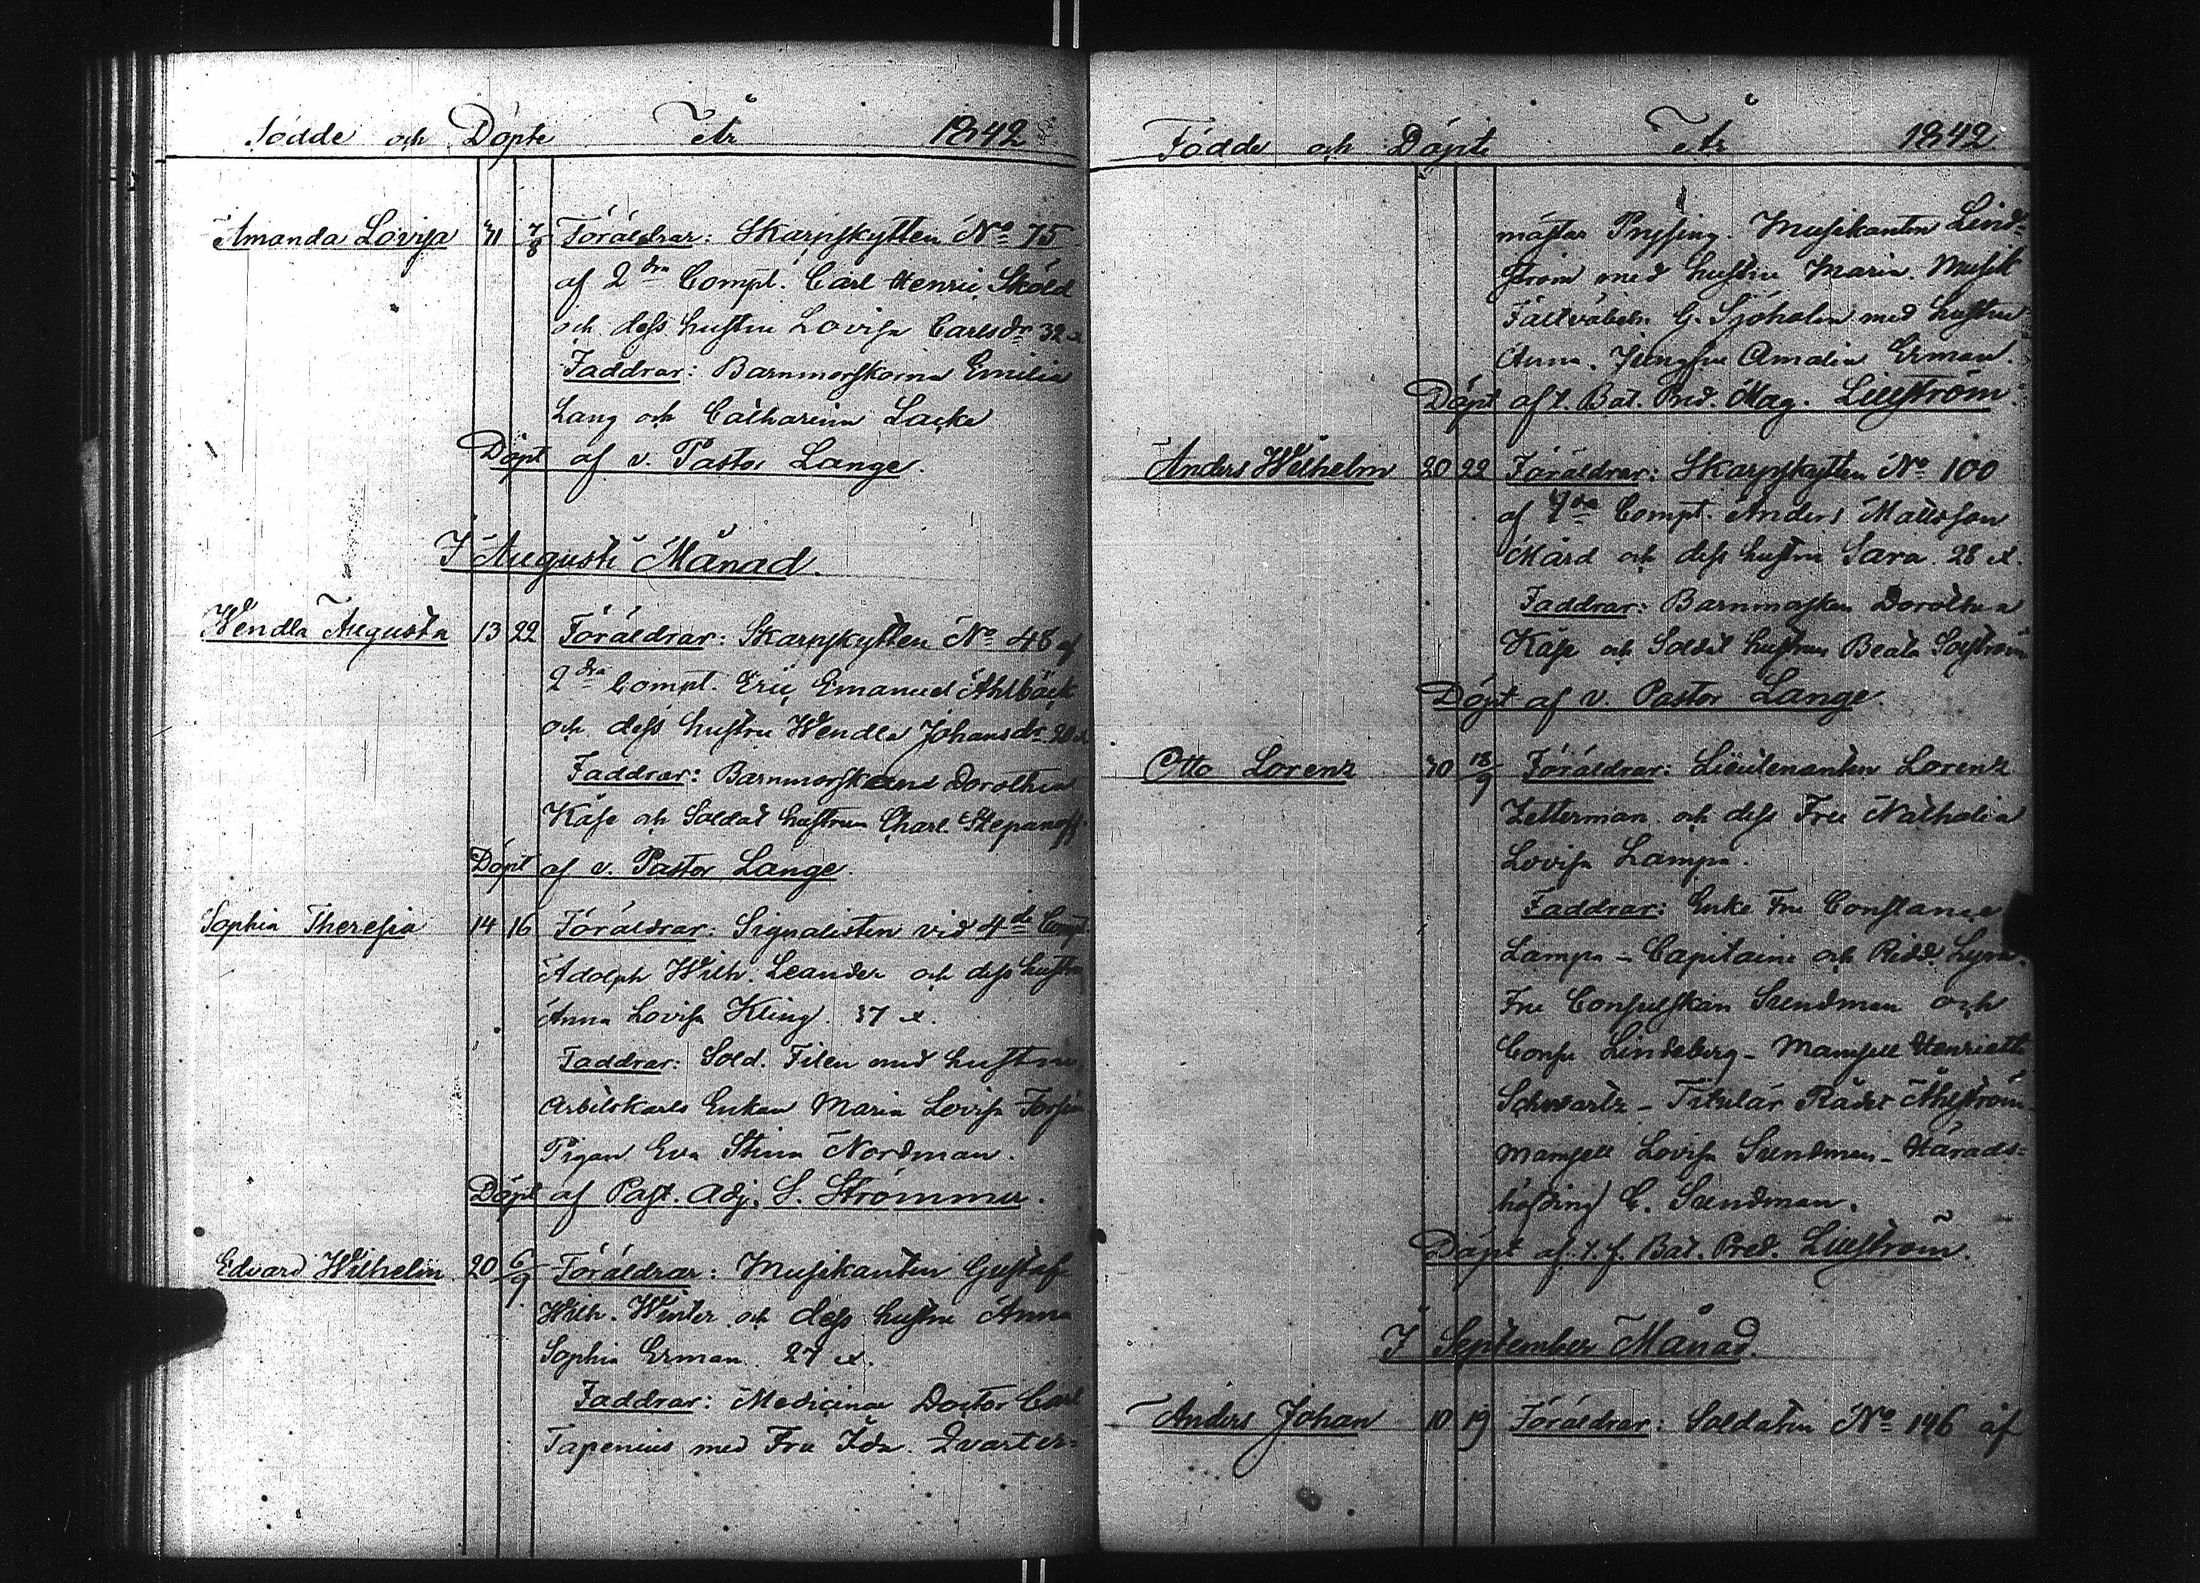 Födde och Döpte År 1842
Amanda Lovisa 31 7/8 Föräldrar: Skarpskytten No 75
af 2dra Compt. Carl Henric Sköld
och dess hustru Lovisa Carlsdr 32 å
Faddrar: Barnmorskorna Emilia
Lang och Catharina Lacke
Döpt af v. Pastor Lange.
I Augusti Månad.
Wendla Augusta 13 22 Föräldrar: Skarpskytten No 48 af
2dra Compt. Eric Emanuel Ahlbäck
och dess hustru Wendla Johansdr 20 å
Faddrar: Barnmorskerna Dorothea
Kåse och Soldat hustrun Charl. Stepanoff.
Döpt af v. Pastor Lange.
Sophia Theresia 14 16 Föräldrar: Signalisten vid 4de Compt
Adolph Wilh. Leander och dess hustru
Anna Lovisa Kling. 37 å.
Faddrar: Sold. Filen med hustru
Arbetskarls Enkan Maria Lovisa
Pigan Eva Stina Nordman.
Döpt af Past. Adj. S. Strömmer.
Edvard Wilhelm 20 6/9 Föräldrar: Musikanten Gustaf
Wilh. Winter och dess hustru Anna
Sophia Erman 27 å.
Faddrar: Medicinæ Doctor Carl
Tapenius med Fru Ida. Qvarter-
Födde och Döpte År 1842
mästar Pryssing. Musikanten Lind-
ström med hustru Maria. Musik
Fältväbeln G. Sjöholm med hustru
Anna. Jungfru Amalia Erman.
Döpt af t. Bat. Pred. Mag. Liliström.
Anders Wilhelm 20 22 Föräldrar: Skarpskytten No 100
af Compt. Anders Mattsson
Mård och dess hustru Sara 28 å.
Faddrar: Barnmorskan Dorothea
Kåse och Soldat hustrun Beata
Döpt af v. Pastor Lange.
Otto Lorenz 30 18/9 Föräldrar: Lieutenanten Lorenz
Zetterman och dess Fru Nathalia
Lovisa Lampa.
Faddrar: Enke Fru Constance
Lampa - Capitaine och Ridd.
Fru Consulskan Sundman och
Consu Lindeberg - Mamsell Henriette
Schwartz - Titulär Rådet Åhlström -
Mamsell Lovisa Sundman - Härads-
höfding C. Sundman.
Döpt af t. f. Bat. Pred. Liliström.
I September Månad.
Anders Johan 10 19 Föräldrar: Soldaten No 146 af